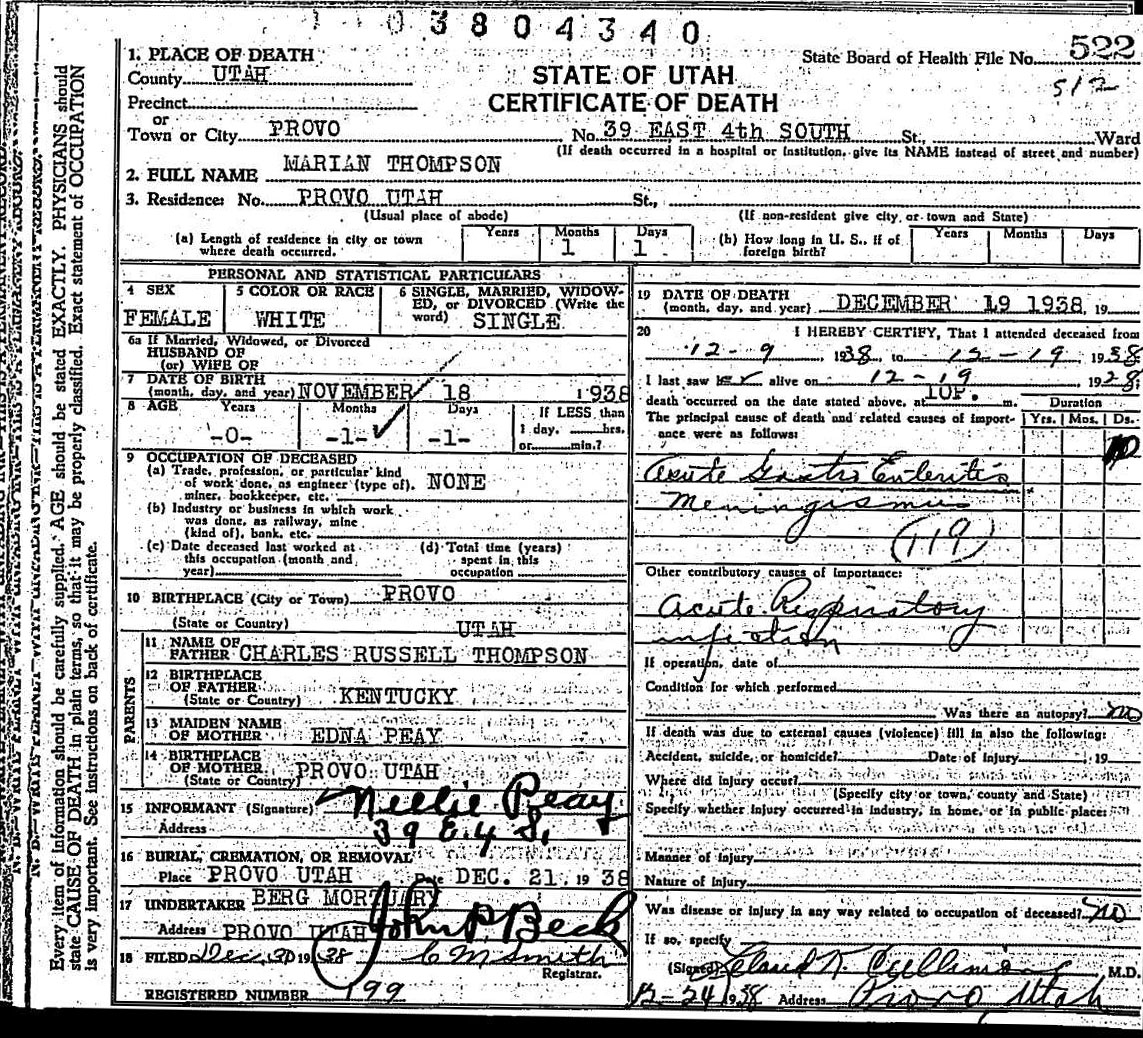 1 1 0 3 8 0 4 3 4 0
1. PLACE OF DEATH
County UTAH
Precinct
or
Town or City PROVO No. 39 EAST 4th SOUTH St., Ward
(If death occurred in a hospital or institution, give its NAME instead of street and number)
STATE OF UTAH
CERTIFICATE OF DEATH
State Board of Health File No. 522
512
2. FULL NAME MARIAN THOMPSON
3. Residence: No. PROVO UTAH St.,
(Usual place of abode) (If non-resident give city, or town and State)
(a) Length of residence in city or town where death occurred. Years Months 1 Days 1
(b) How long in U. S., if of foreign birth? Years Months Days
PERSONAL AND STATISTICAL PARTICULARS
4 SEX FEMALE
5 COLOR OR RACE WHITE
6 SINGLE, MARRIED, WIDOWED, or DIVORCED (Write the word) SINGLE
6a If Married, Widowed, or Divorced
HUSBAND OF
(or) WIFE OF
7 DATE OF BIRTH
(month, day, and year) NOVEMBER 18 1938
8 AGE Years Months Days If LESS than
-0- -1- -1- 1 day, hrs.
or min.?
9 OCCUPATION OF DECEASED
(a) Trade, profession, or particular kind
of work done, as engineer (type of), NONE
miner, bookkeeper, etc.
(b) Industry or business in which work
was done, as railway, mine
(kind of), bank, etc.
(c) Date deceased last worked at
this occupation (month and
year)
(d) Total time (years)
spent in this
occupation
10 BIRTHPLACE (City or Town) PROVO
(State or Country) UTAH
PARENTS
11 NAME OF
FATHER CHARLES RUSSELL THOMPSON
12 BIRTHPLACE
OF FATHER KENTUCKY
(State or Country)
13 MAIDEN NAME
OF MOTHER EDNA PEAY
14 BIRTHPLACE
OF MOTHER PROVO UTAH
(State or Country)
15 INFORMANT (Signature) Nellie Peay
Address 39 E. 4 S.
16 BURIAL, CREMATION, OR REMOVAL
Place PROVO UTAH Date DEC. 21, 1938
17 UNDERTAKER BERG MORTUARY
Address PROVO UTAH John P Beck
18 FILED Dec, 30 1938 C M Smith
Registrar.
REGISTERED NUMBER 199
19 DATE OF DEATH
(month, day, and year) DECEMBER 19 1938, 19
20 I HEREBY CERTIFY, That I attended deceased from
12-9, 1938, to 12-19, 1938
I last saw er alive on 12-19 1928
death occurred on the date stated above, at 10P. m. Duration
The principal cause of death and related causes of importance were as follows: Yrs. Mos. Ds.
10
Acute Gastro Enteritis
Meningismus
(119)
Other contributory causes of importance:
Acute Respiratory
infection
If operation, date of
Condition for which performed
Was there an autopsy? no
If death was due to external causes (violence) fill in also the following:
Accident, suicide, or homicide? Date of injury , 19
Where did injury occur?
(Specify city or town, county and State)
Specify whether injury occurred in industry, in home, or in public place:
Manner of injury
Nature of injury
Was disease or injury in any way related to occupation of deceased? no
If so, specify
(Signed) M.D.
12-24 1938 Address Provo, Utah
Every item of information should be carefully supplied. AGE should be stated EXACTLY. PHYSICIANS should
state CAUSE OF DEATH in plain terms, so that it may be properly classified. Exact statement of OCCUPATION
is very important. See instructions on back of certificate.